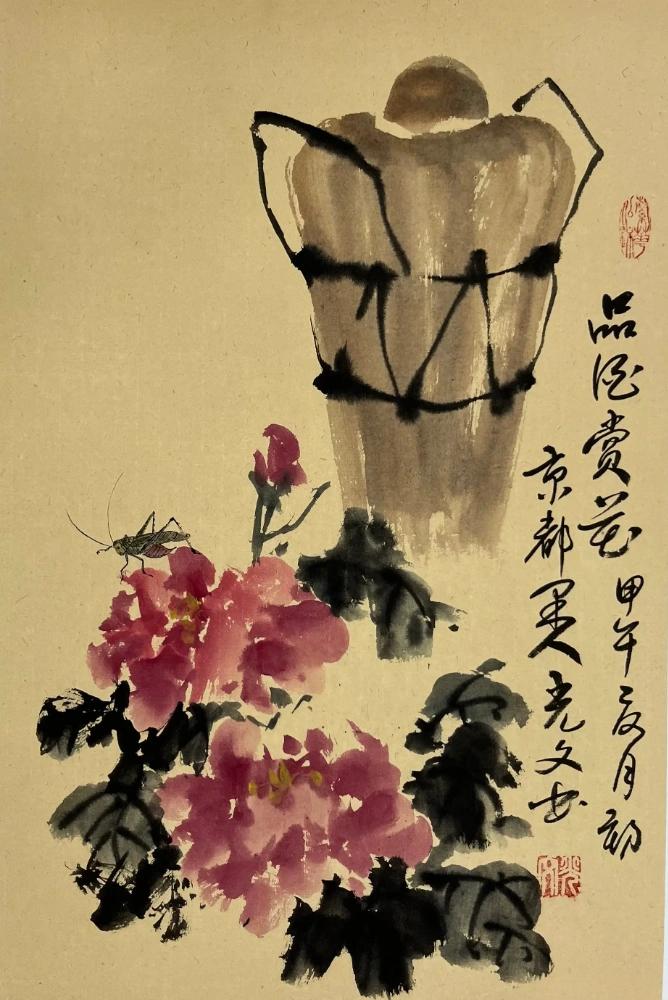 品酒赏花 甲午夏月初
京都墨人光文